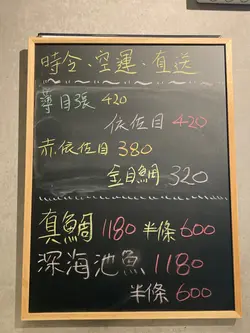 時令、空運、直送
薄目張 420
依佐目 420
赤依佐目 380
金目鯛 320
真鯛 1180 半條 600
深海池魚 1180
半條 600